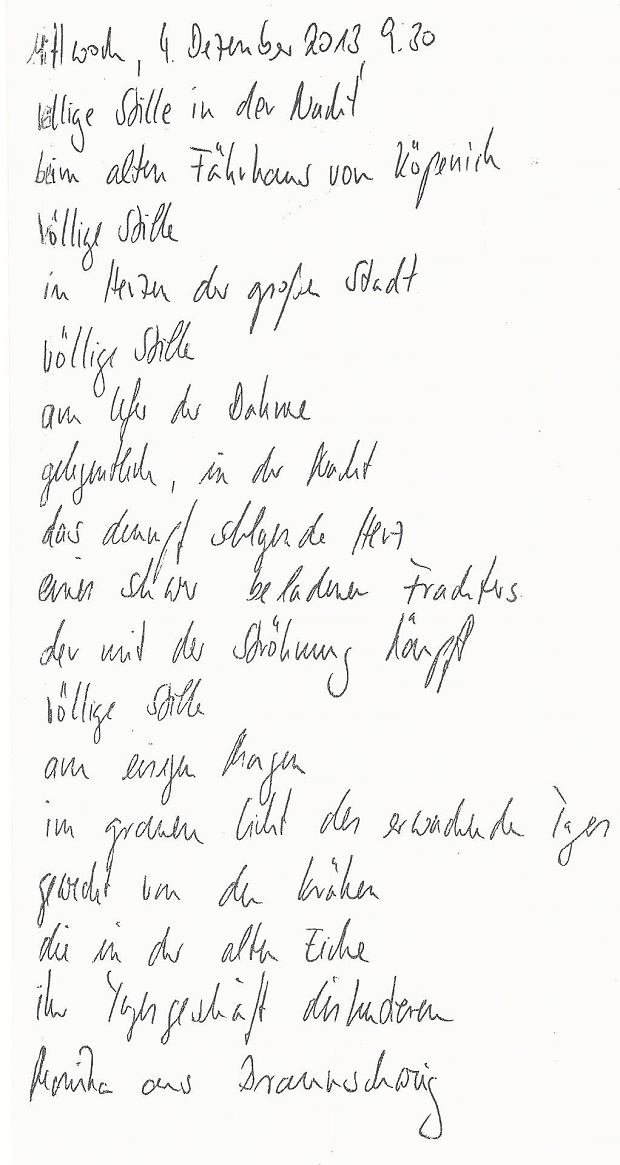 Mittwoch, 4. Dezember 2013, 9.30
völlige Stille in der Nacht
beim alten Fährhaus von Köpenick
völlige Stille
im Herzen der großen Stadt
völlige Stille
am Ufer der Dahme
gelegentlich, in der Nacht
das dumpf schlagende Herz
eines schwer beladenen Frachters
der mit der Ströhmung kämpft
völlige Stille
am eisigen Morgen
im grauen Licht des erwachenden Tages
geweckt von den Krähen
die in der alten Eiche
ihr Tagesgeschäft diskutieren
Monika aus Braunschweig